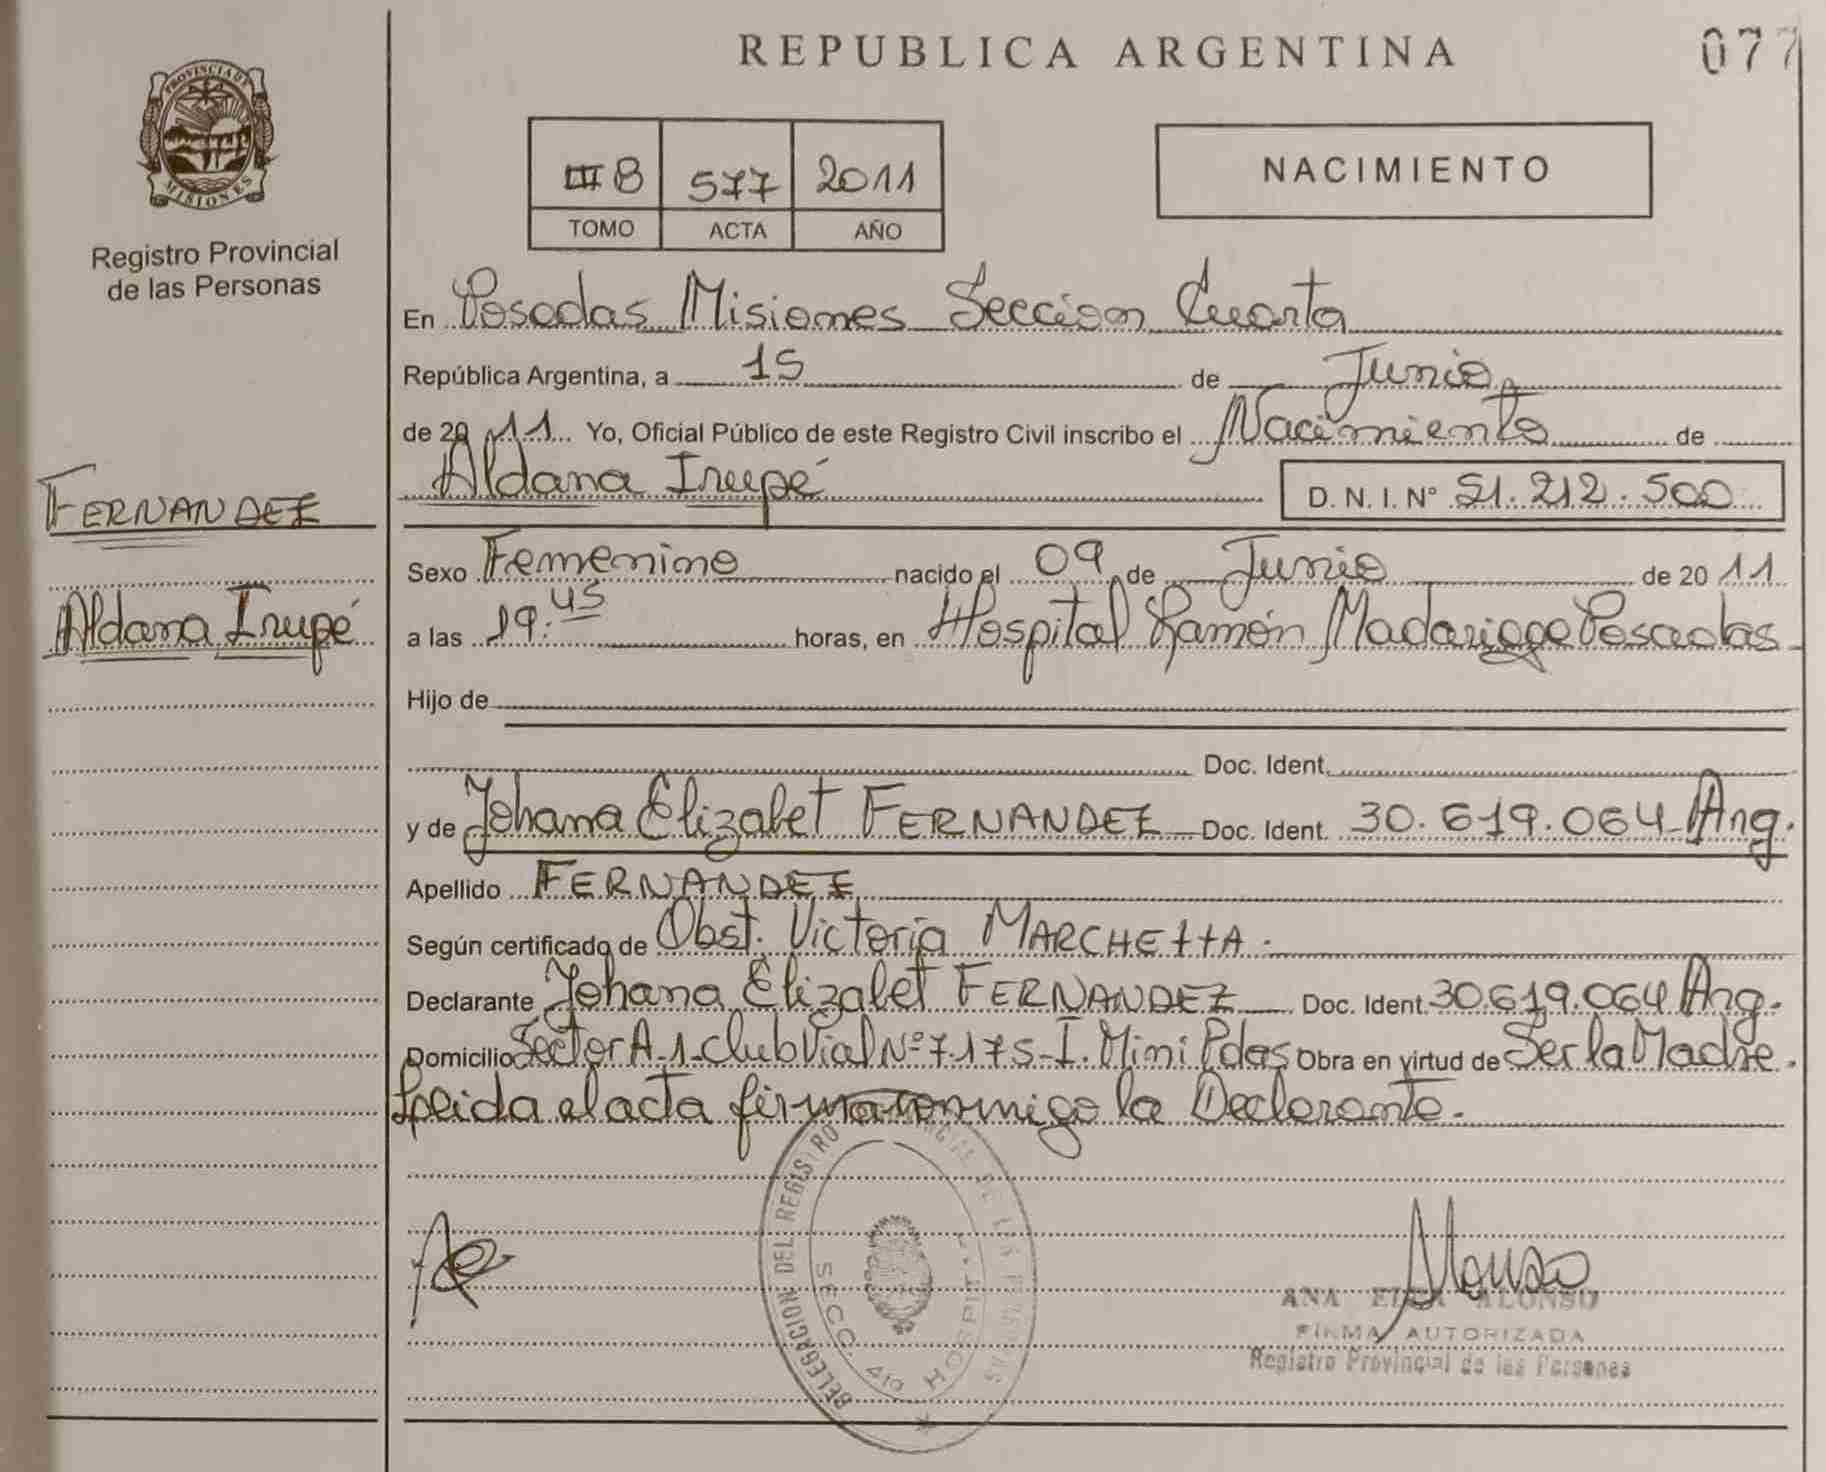 REPUBLICA ARGENTINA
077
PROVINCIA DE
MISIONES
Registro Provincial
de las Personas
III B 577 2011
TOMO ACTA AÑO
NACIMIENTO
En Posadas Misiones Seccion Cuarta
República Argentina, a 15 de Junio
de 2011 Yo, Oficial Público de este Registro Civil inscribo el Nacimiento de
Aldana Irupé D. N. I. N° 51.212.500
FERNANDEZ
Aldana Irupé
Sexo Femenino nacido el 09 de Junio de 2011
a las 19:45 horas, en Hospital Ramón Madariaga Posadas
Hijo de
Doc. Ident.
y de Johana Elizabet FERNANDEZ Doc. Ident. 30.619.064 Arg.
Apellido FERNANDEZ
Según certificado de Obst. Victoria MARCHETTA.
Declarante Johana Elizabet FERNANDEZ Doc. Ident. 30.619.064 Arg.
Domicilio Sector A-1-Club Vial N° 7.175-I. Mini Pdas Obra en virtud de Ser la Madre.
Leida el acta firma conmigo la Declarante.
DELEGACION DEL REGISTRO PROVINCIAL DE LAS PERSONAS
SECC. 4ta HOSPITAL
Alonso
ANA ELSA ALONSO
FIRMA AUTORIZADA
Registro Provincial de las Personas